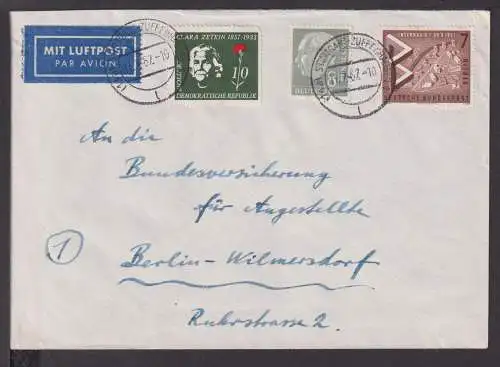 MIT LUFTPOST
PAR AVION
CLARA ZETKIN 1857-1933
10
DEMOKRATISCHE REPUBLIK
7
BERLIN
DEUTSCHE BUNDESPOST
An die
Bundesversicherung
für Angestellte
1
Berlin-Wilmersdorf
Ruhrstrasse 2.